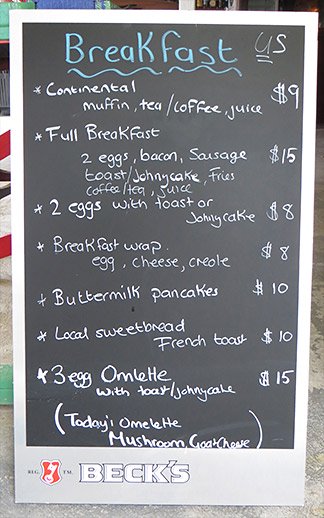 Breakfast US
* Continental $9
muffin, tea/coffee, juice
* Full Breakfast
2 eggs, bacon, Sausage $15
toast/Johnycake, fries
coffee/tea, juice
* 2 eggs with toast or
Johnycake $8
* Breakfast wrap. $8
egg, cheese, creole
* Buttermilk pancakes $10
* Local sweetbread
French toast $10
* 3 egg Omlette $15
with toast/johnycake
(Today's Omelette
Mushroom Goat Cheese)
REG. T.M. BECK'S